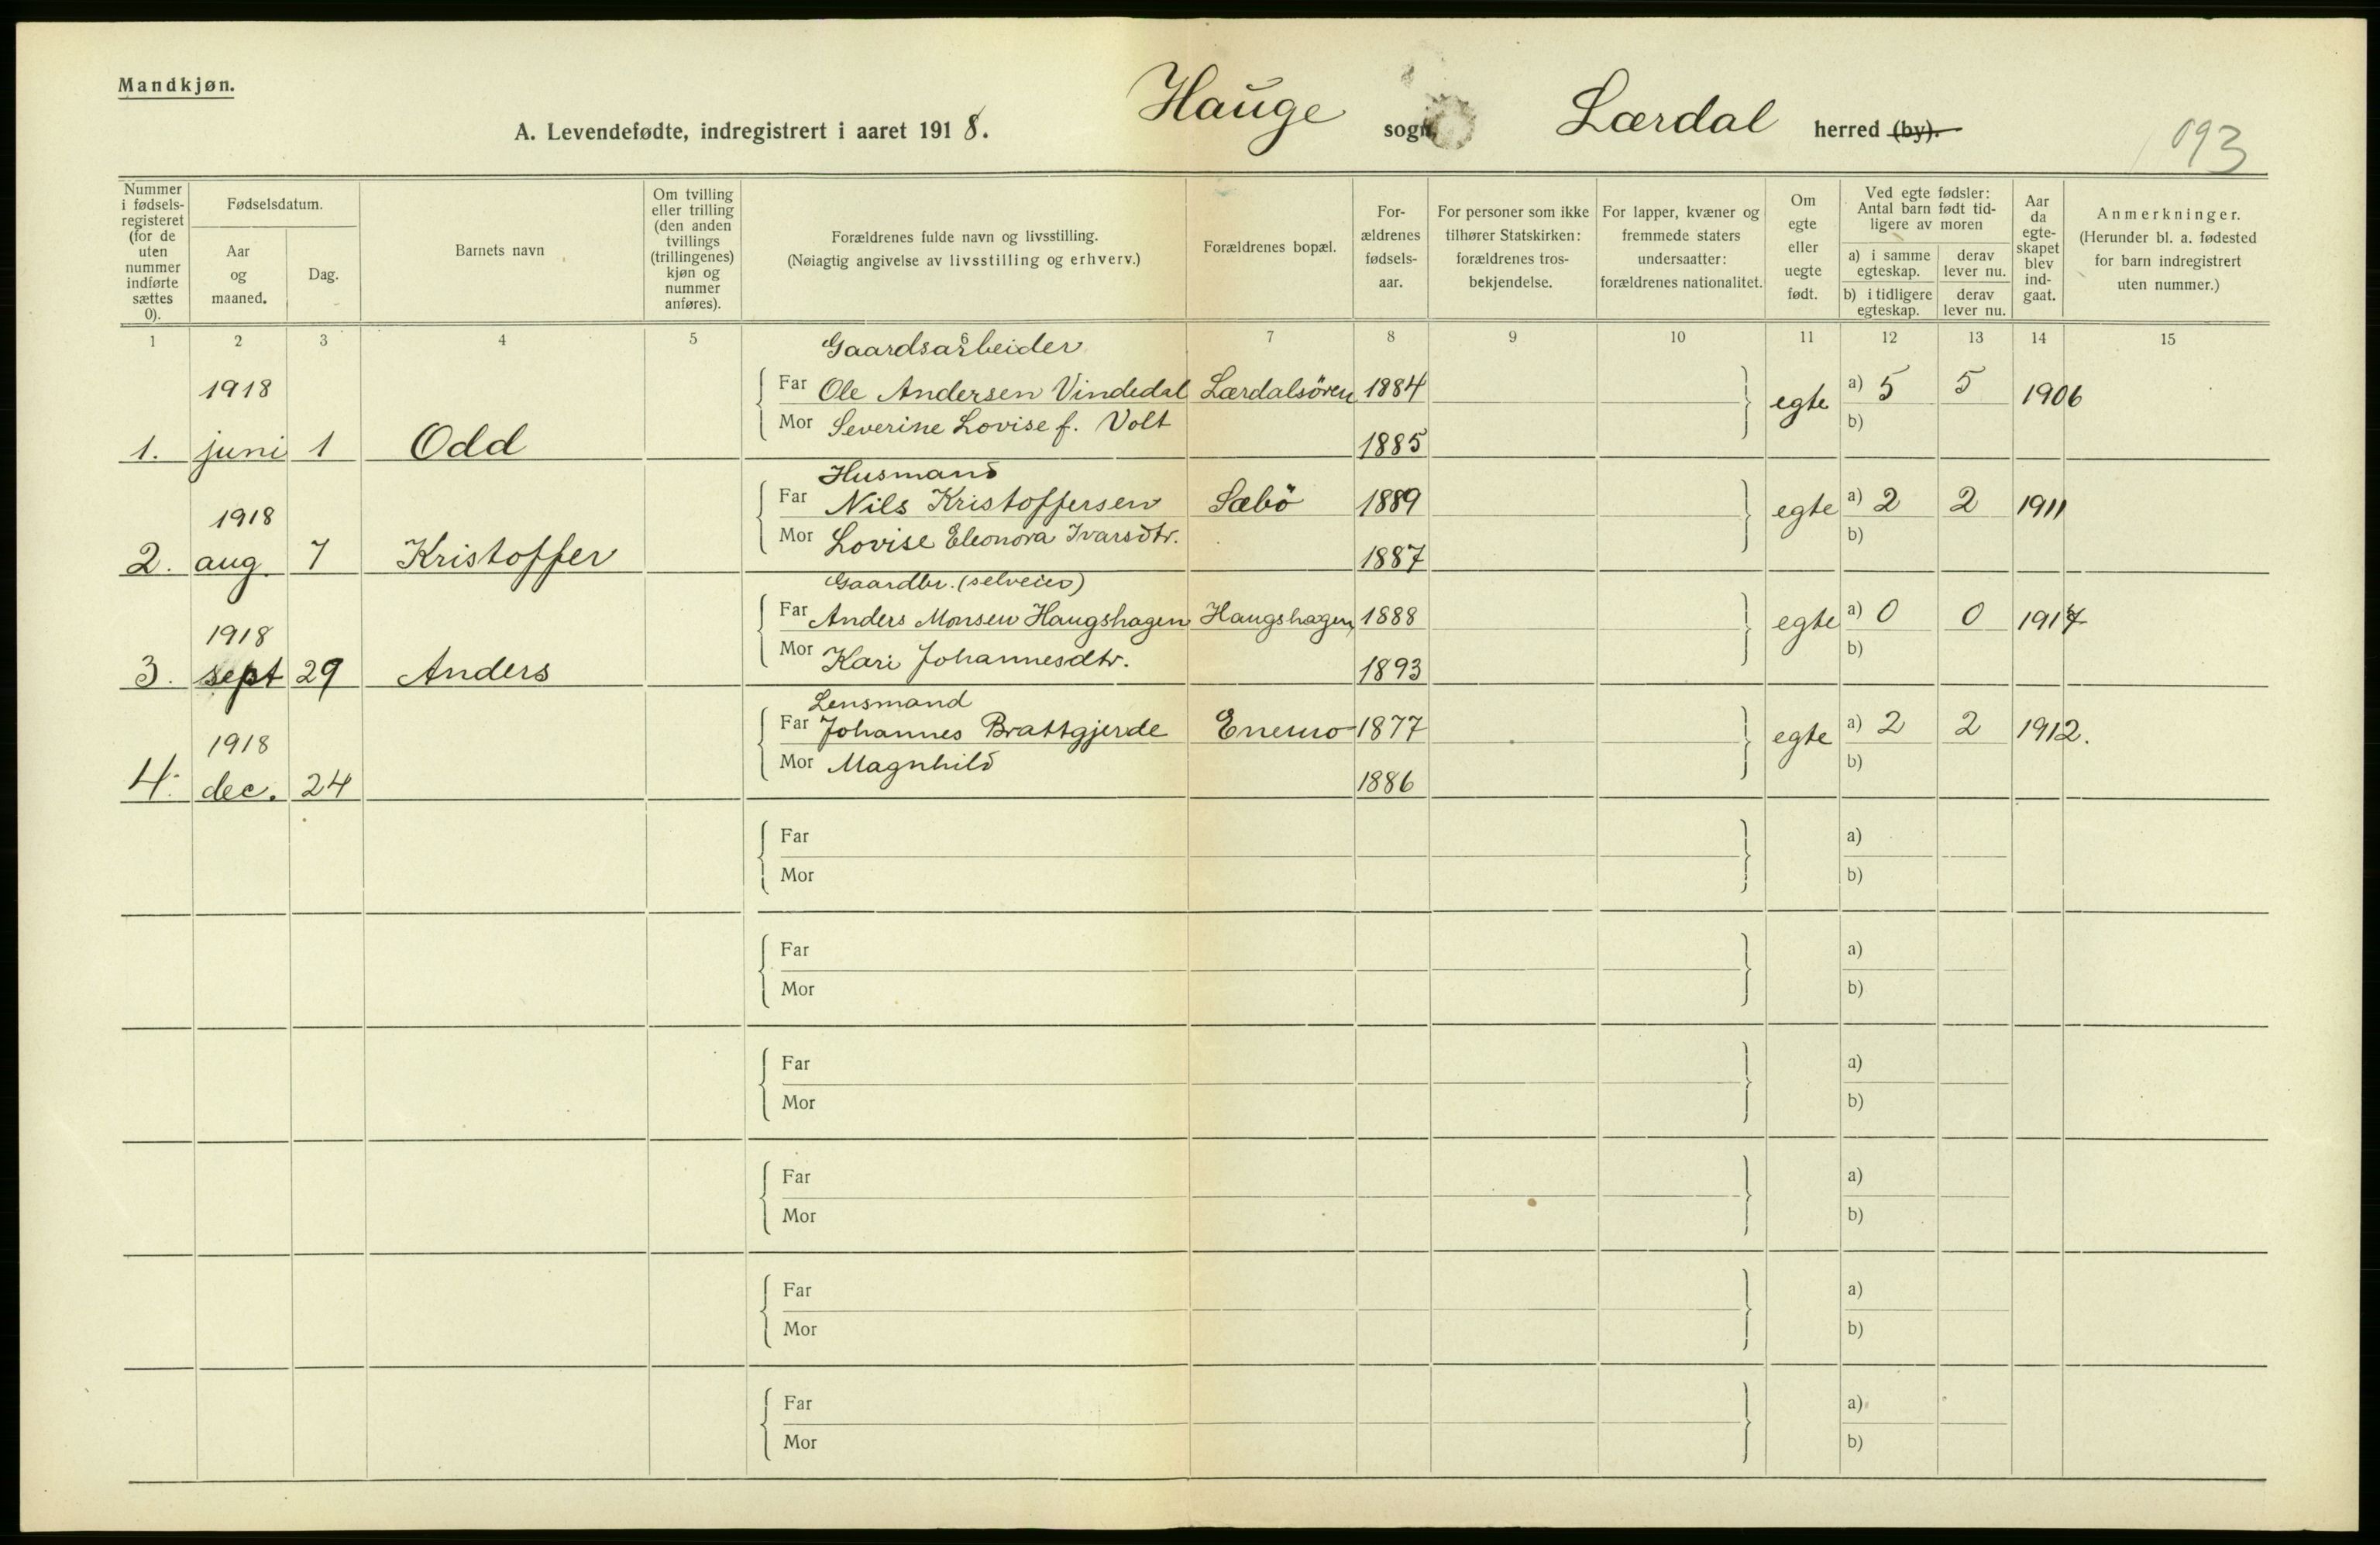 Mandkjøn.
A. Levendefødte, indregistrert i aaret 1918. Hauge sogn, Lærdal herred (by).
093
Nummer i fødsels-registeret (for de uten nummer indførte sættes 0).
Fødselsdatum.
Aar og maaned.
Dag.
Barnets navn
Om tvilling eller trilling (den anden tvillings (trillingenes) kjøn og nummer anføres).
Forældrenes fulde navn og livsstilling.
(Nøiagtig angivelse av livsstilling og erhverv.)
Forældrenes bopæl.
For-ældrenes fødsels-aar.
For personer som ikke tilhører Statskirken: forældrenes tros-bekjendelse.
For lapper, kvæner og fremmede staters undersaatter: forældrenes nationalitet.
Om egte eller uegte født.
Ved egte fødsler: Antal barn født tid-ligere av moren
a) i samme egteskap.
derav lever nu.
b) i tidligere egteskap.
derav lever nu.
Aar da egte-skapet blev ind-gaat.
Anmerkninger.
(Herunder bl. a. fødested for barn indregistrert uten nummer.)
1 2 3 4 5 7 8 9 10 11 12 13 14 15
Gaardsarbeider
1918 Far Ole Andersen Vindedal Lærdalsören 1884 egte a) 5 5 1906
Mor Severine Lovise f. Volt b)
1. juni 1 Odd 1885
Husmand
1918 Far Nils Kristoffersen Sæbö 1889 egte a) 2 2 1911
Mor Lovise Eleonora Ivarsdtr. b)
2. aug. 7 Kristoffer 1887
Gaardbr. (selveier)
1918 Far Anders Monsen Haugshagen Haugshagen 1888 egte a) 0 0 1917
Mor Kari Johannesdtr. b)
3. sept 29 Anders 1893
Lensmand
1918 Far Johannes Brattgjerde Enemo 1877 egte a) 2 2 1912.
Mor Magnhild b)
4. dec. 24 1886
Far a)
Mor b)
Far a)
Mor b)
Far a)
Mor b)
Far a)
Mor b)
Far a)
Mor b)
Far a)
Mor b)